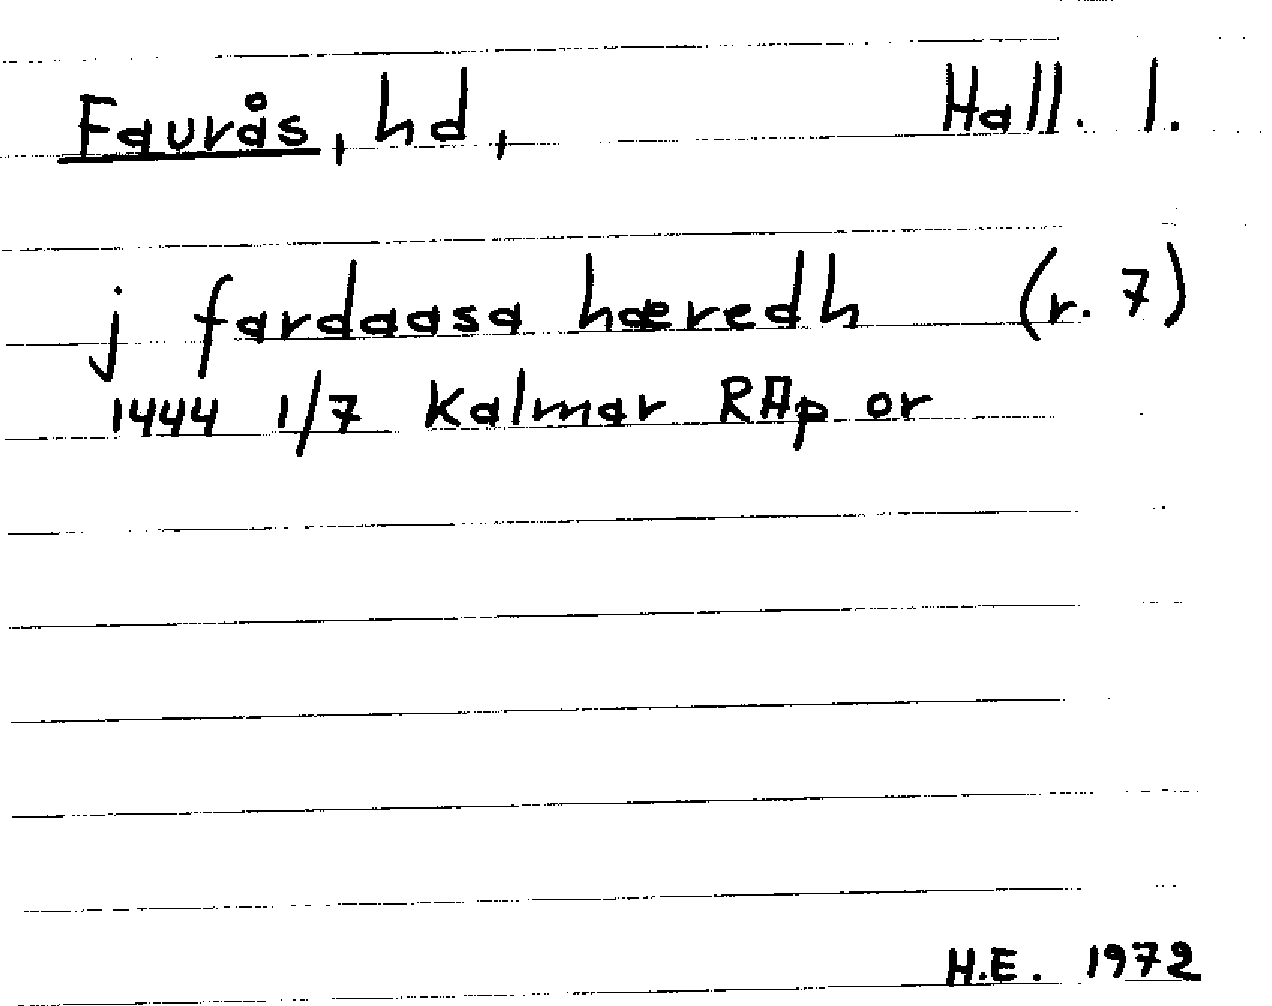 Faurås, hd, Hall. l.
j fardaasa hæredh (r. 7)
1444 1/7 Kalmar RAp or
H.E. 1972